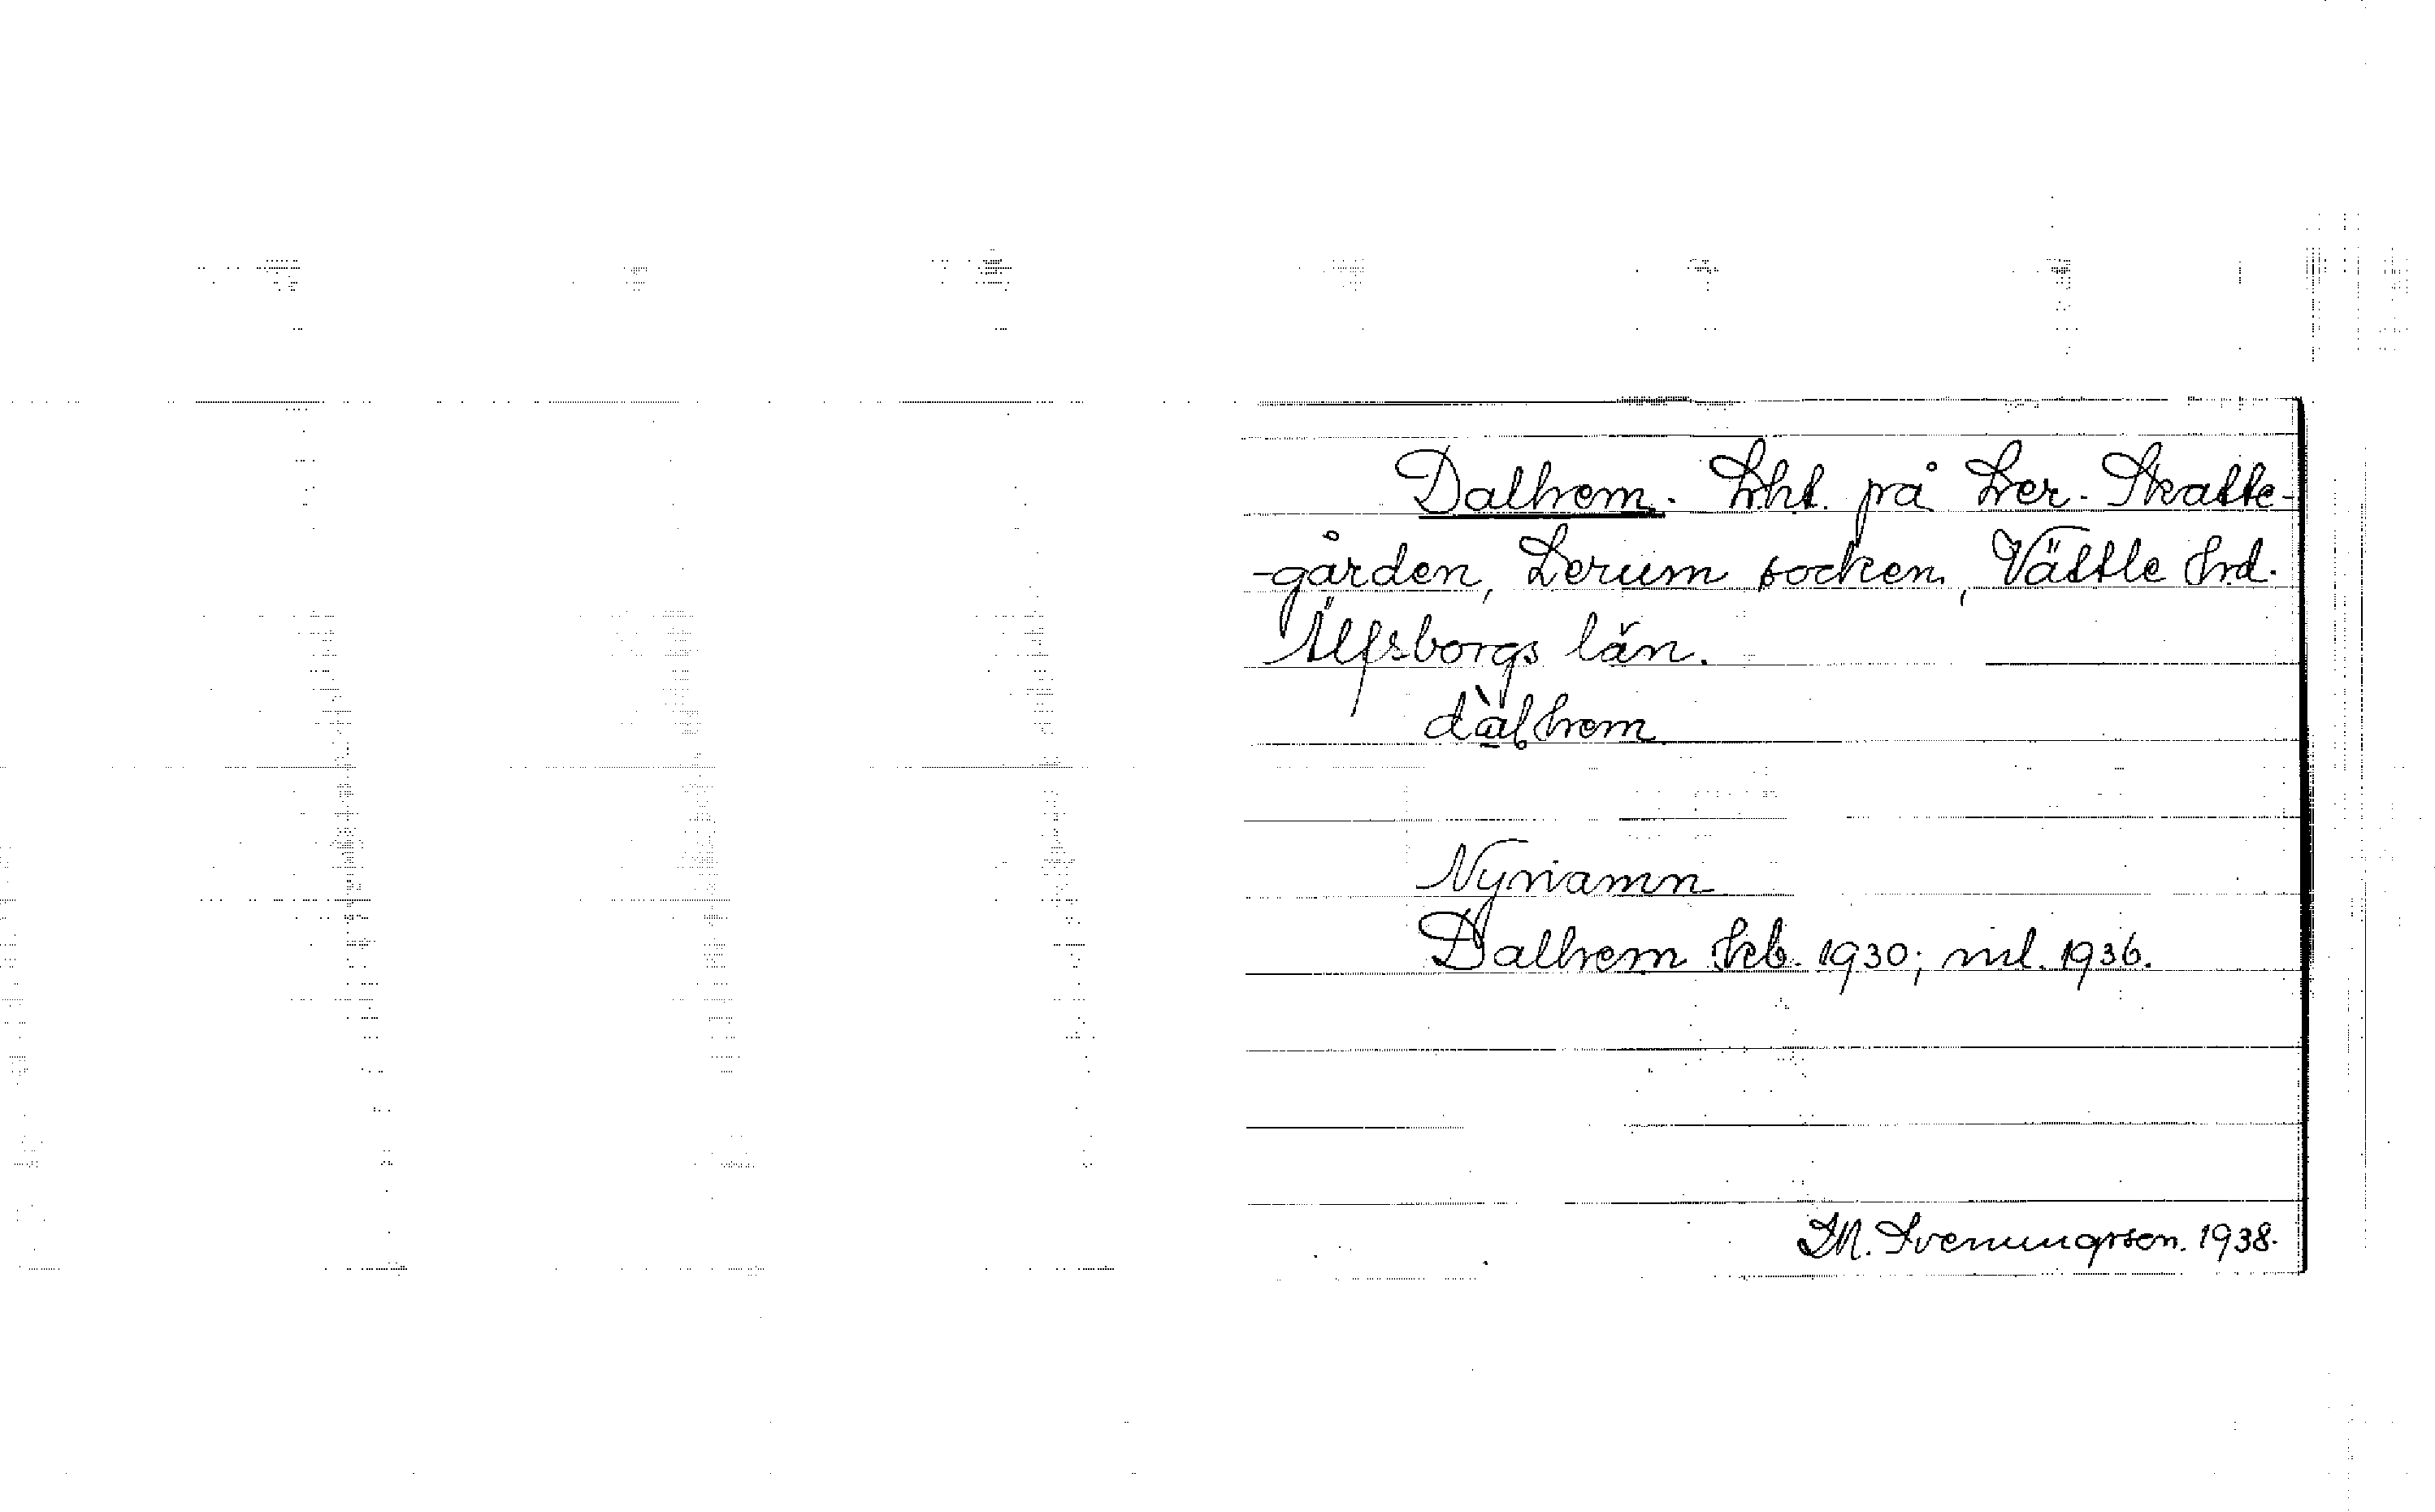 Dalhem. Lht. på Ler-Skatte-
-gården, Lerum socken, Vättle hrd.
Älfsborgs län.
dàlhem
Nynamn
Dalhem kb. 1930; ml. 1936.
M. Svenungsson. 1938.